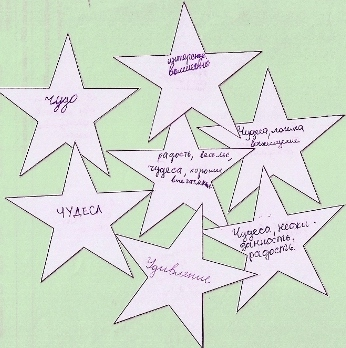 Чудо
интересно
волшебно
Чудеса, логика
восхищение
радость, веселье,
чудеса, хорошие
впечатления
ЧУДЕСА
Чудеса, неожи-
данность,
радость.
Удивление.